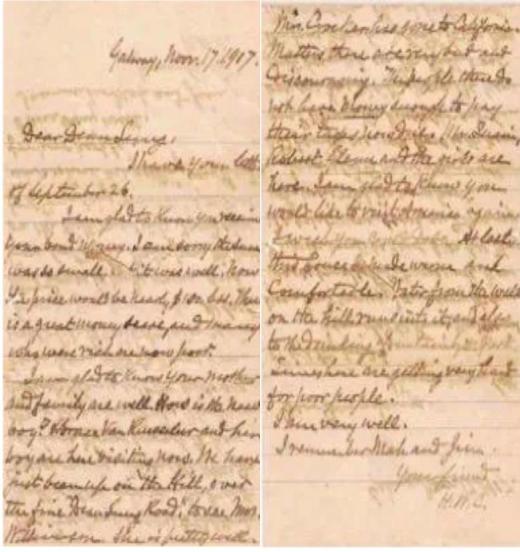 Galway, Nov. 17. 1907.
Dear Dean Lung,
I have your letter
of September 26.
I am glad to know you receive
your bond money. I am sorry the sum
was so small. it was well. Now
price would be
is a great money scare, and many
who were rich are now poor.
I am glad to know your mother
and family are well. How is the new
boy? Horace Van Rensselaer and her
boy are here visiting now. We have
just been up on the Hill, over
the fine Dean Lung Road, to see Mrs.
Wilkinson. She is pretty well.
Mrs. Crocker has gone to California
Matters there are very bad and
Discouraging. The people there do
not have money enough to pay
their taxes now due. Mr.
Robert, and the girls are
here. I am glad to know you
would like to visit America again
I wish you At last
this house made warm and
Comfortable. Water from the well
on the hill runs into it, and also
to the drinking
Times here are getting very hard
for poor people.
I am very well.
I remember Mah and Jim.
Your friend
H.W.C.